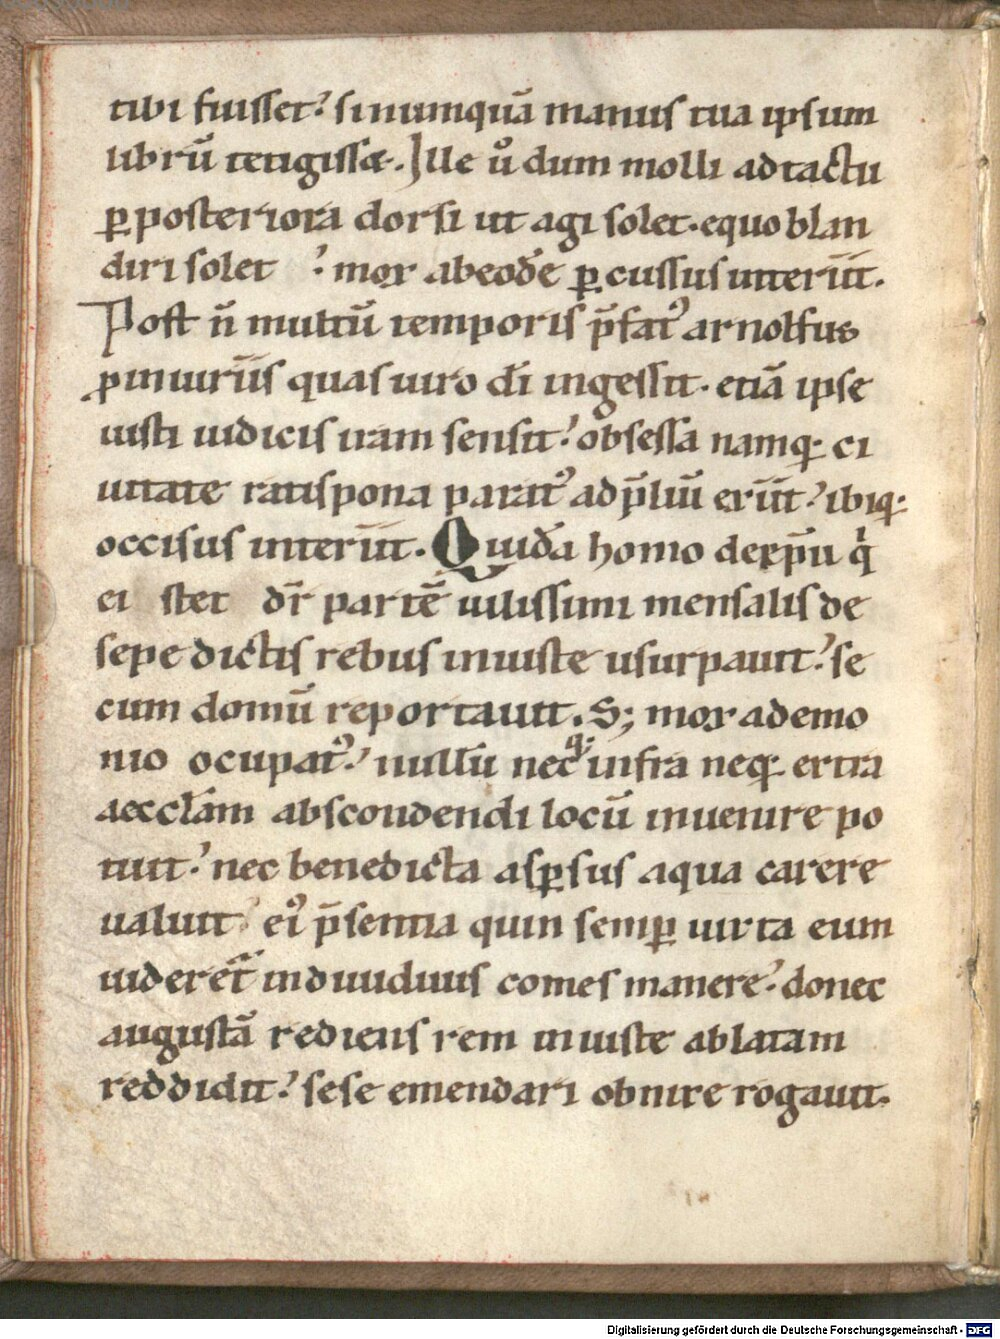 tibi fuisset. si numquā manus tua ipsum
librū tetigisset. Ille u͛o dum molli ad tactu
ꝑ posteriora dorsi ut agi solet. equo blan
diri solet . mox ab eodē ꝑcussus interiit.
Post n̄ multū temporis p̄fat᾿ arnolfus
ꝓ iniuriis quas uiro dī ingessit. etiā ipse
iusti iudicis iram sensit. obsessa namq; ci
uitate ratispona parat᾿ ad p̄liū eriit. ibiq;
occisus interiit. Quidā homo de exp̄u q͛i
ei stet dr̄ partē uilissimi mensalis de
sepe dictis rebus iniuste usurpauit. se
cum domū reportauit. S; mox a demo
nio ocupat᾿. nullū nec q; infra neq; extra
aeccl̄am abscondendi locū inuenire po
tuit. nec benedicta asꝑsus aqua carere
ualuit ei᾿ p̄sentia quin semꝑ iuxta eum
uideret̄ indiuiduus comes manere. donec
augustā rediens rem iniuste ablatam
reddidit. sese emendari obnixe rogauit.
Digitalisierung gefördert durch die Deutsche Forschungsgemeinschaft - DFG